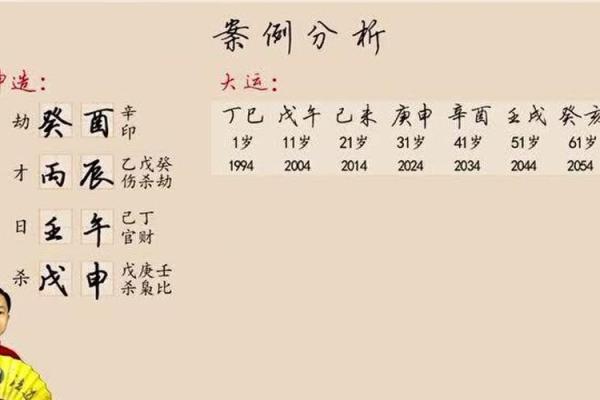 案例分析
坤造：
劫 癸 酉 辛
印
才 丙 辰 乙戊癸
伤杀劫
日 壬 午 己丁
官财
杀 戊 申 戊庚壬
杀枭比
大运：
丁巳 戊午 己未 庚申 辛酉 壬戌 癸亥
1岁 11岁 21岁 31岁 41岁 51岁 61岁
1994 2004 2014 2024 2034 2044 2054